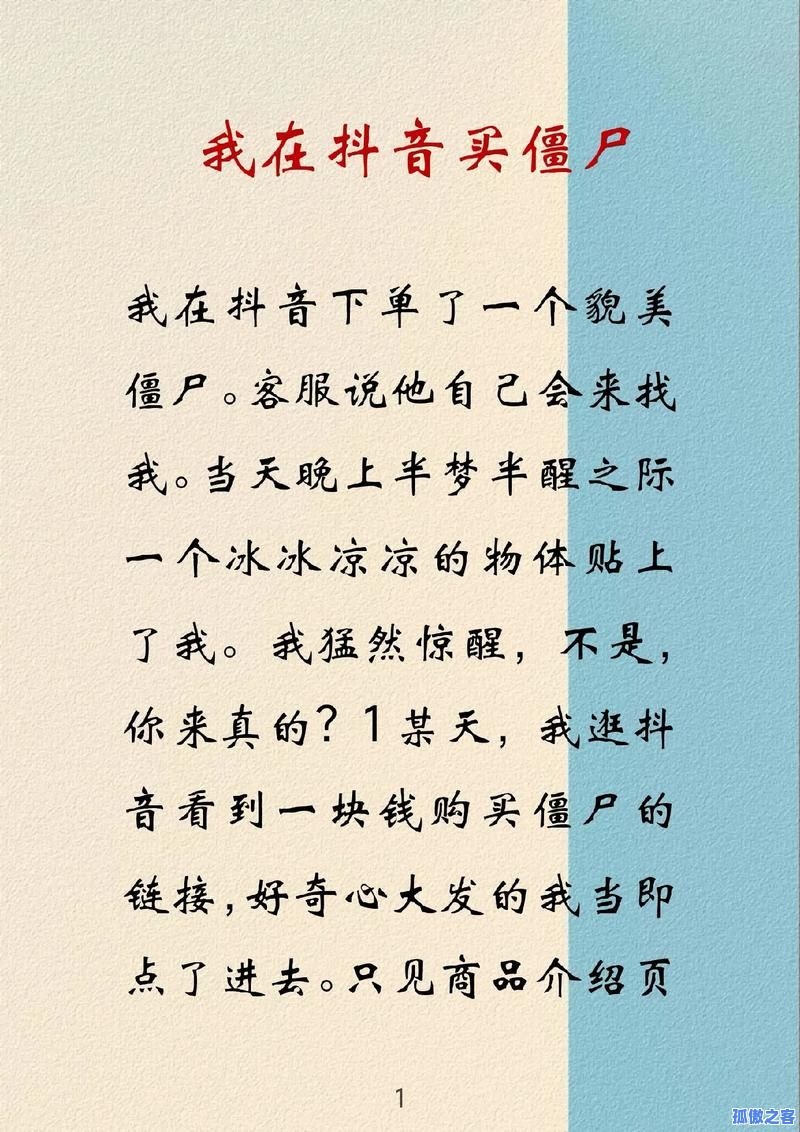 我在抖音买僵尸
我在抖音下单了一个貌美
僵尸。客服说他自己会来找
我。当天晚上半梦半醒之际
一个冰冰凉凉的物体贴上
了我。我猛然惊醒，不是，
你来真的？1某天，我逛抖
音看到一块钱购买僵尸的
链接，好奇心大发的我当即
点了进去。只见商品介绍页
1
孤傲之客